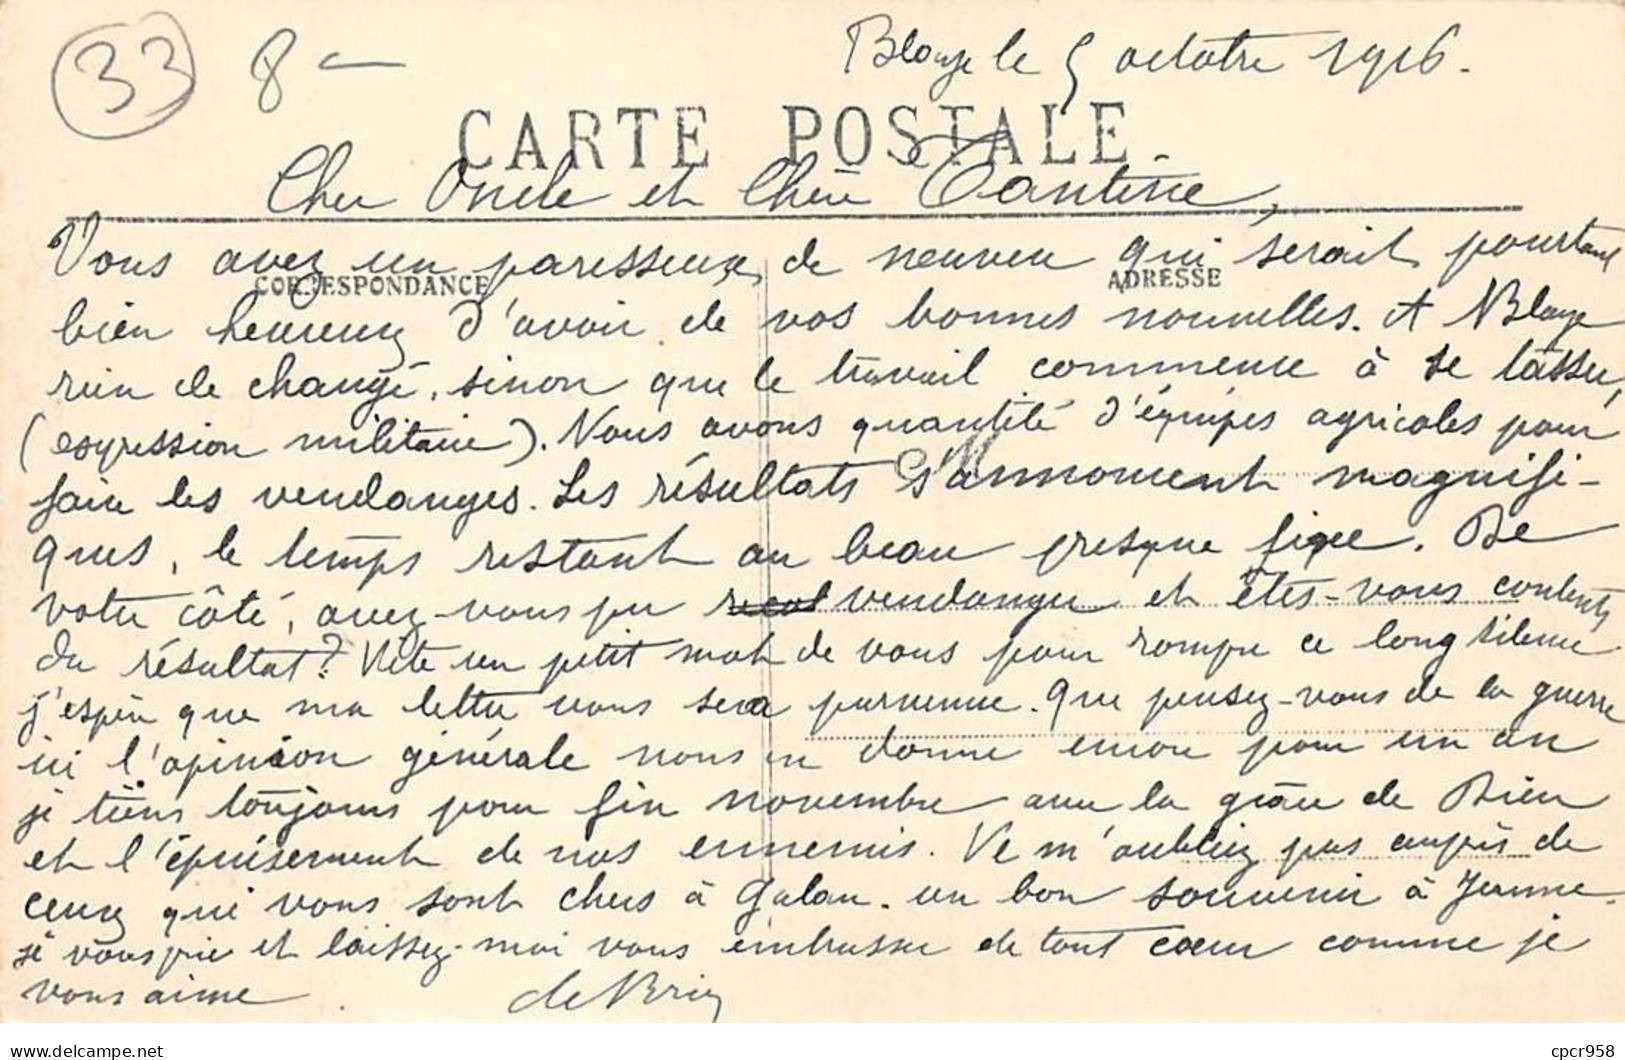 33 8 -
Blaye le 5 octobre 1916.
CARTE POSTALE
Cher Oncle et Chère Tantine,
Vous avez un paresseux de neuveu qui serait pourtant
CORRESPONDANCE
ADRESSE
bien heureux d'avoir de vos bonnes nouvelles. A Blaye
rien de changé, sinon que le travail commence à se tasser,
(expression militaire). Nous avons quantité d'équipes agricoles pour
faire les vendanges. Les résultats s'annoncent magnifi-
ques, le temps restant au beau presque fixe. De
votre côté, avez-vous pu vendanger et êtes-vous contents
du résultat? Vite un petit mot de vous pour rompre ce long silence
j'espère que ma lettre vous sera parvenue. Que pensez-vous de la guerre
ici l'opinion générale nous en donne encore pour un an
je tiens toujours pour fin novembre avec la grâce de Dieu
et l'épuisement de nos ennemis. Ne m'oubliez pas auprès de
ceux qui vous sont chers à Galan. un bon souvenir à Jeanne.
je vous prie et laissez-moi vous embrasser de tout cœur comme je
vous aime.
cpcr958